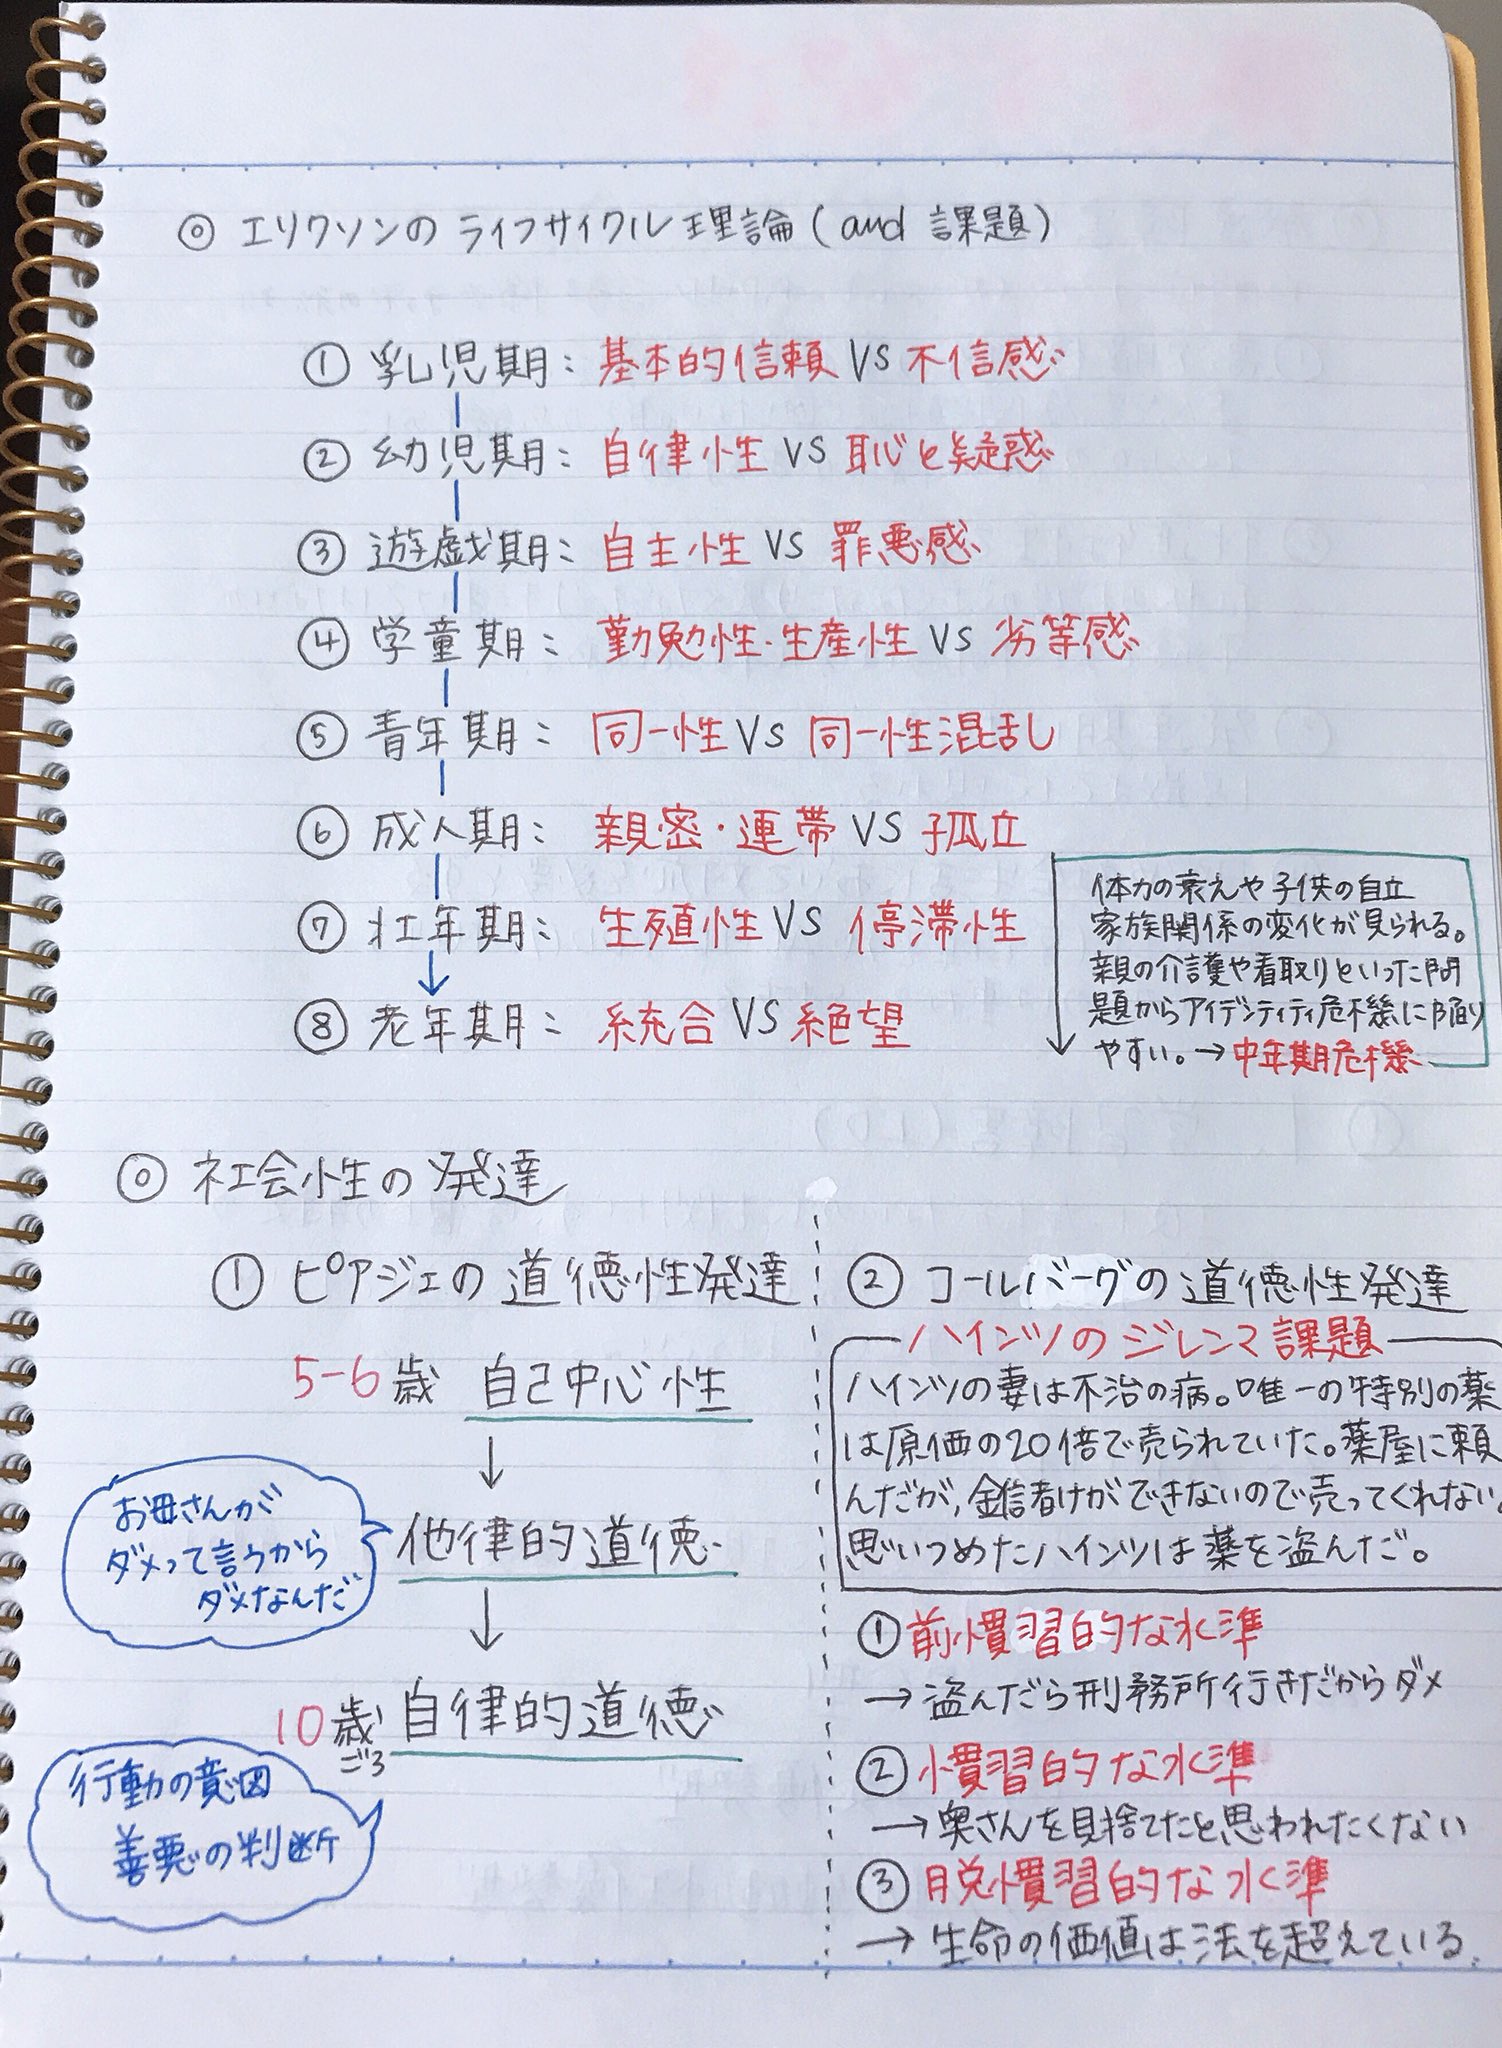 ◎ エリクソンのライフサイクル理論(and 課題)
① 乳児期: 基本的信頼 VS 不信感
② 幼児期: 自律性 VS 恥と疑惑
③ 遊戯期: 自主性 VS 罪悪感
④ 学童期: 勤勉性・生産性 VS 劣等感
⑤ 青年期: 同一性 VS 同一性混乱
⑥ 成人期: 親密・連帯 VS 孤立
⑦ 壮年期: 生殖性 VS 停滞性
⑧ 老年期: 統合 VS 絶望
体力の衰えや子供の自立
家族関係の変化が見られる。
親の介護や看取りといった問
題からアイデンティティ危機に陥り
やすい。→中年期危機
◎ 社会性の発達
① ピアジェの道徳性発達
5-6歳 自己中心性
↓
他律的道徳
お母さんが
ダメって言うから
ダメなんだ
↓
10歳ごろ 自律的道徳
行動の意図
善悪の判断
② コールバーグの道徳性発達
ハインツのジレンマ課題
ハインツの妻は不治の病。唯一の特別の薬
は原価の20倍で売られていた。薬屋に頼
んだが,金儲けができないので売ってくれない。
思いつめたハインツは薬を盗んだ。
①前慣習的な水準
→盗んだら刑務所行きだからダメ
②慣習的な水準
→奥さんを見捨てたと思われたくない
③脱慣習的な水準
→生命の価値は法を超えている。